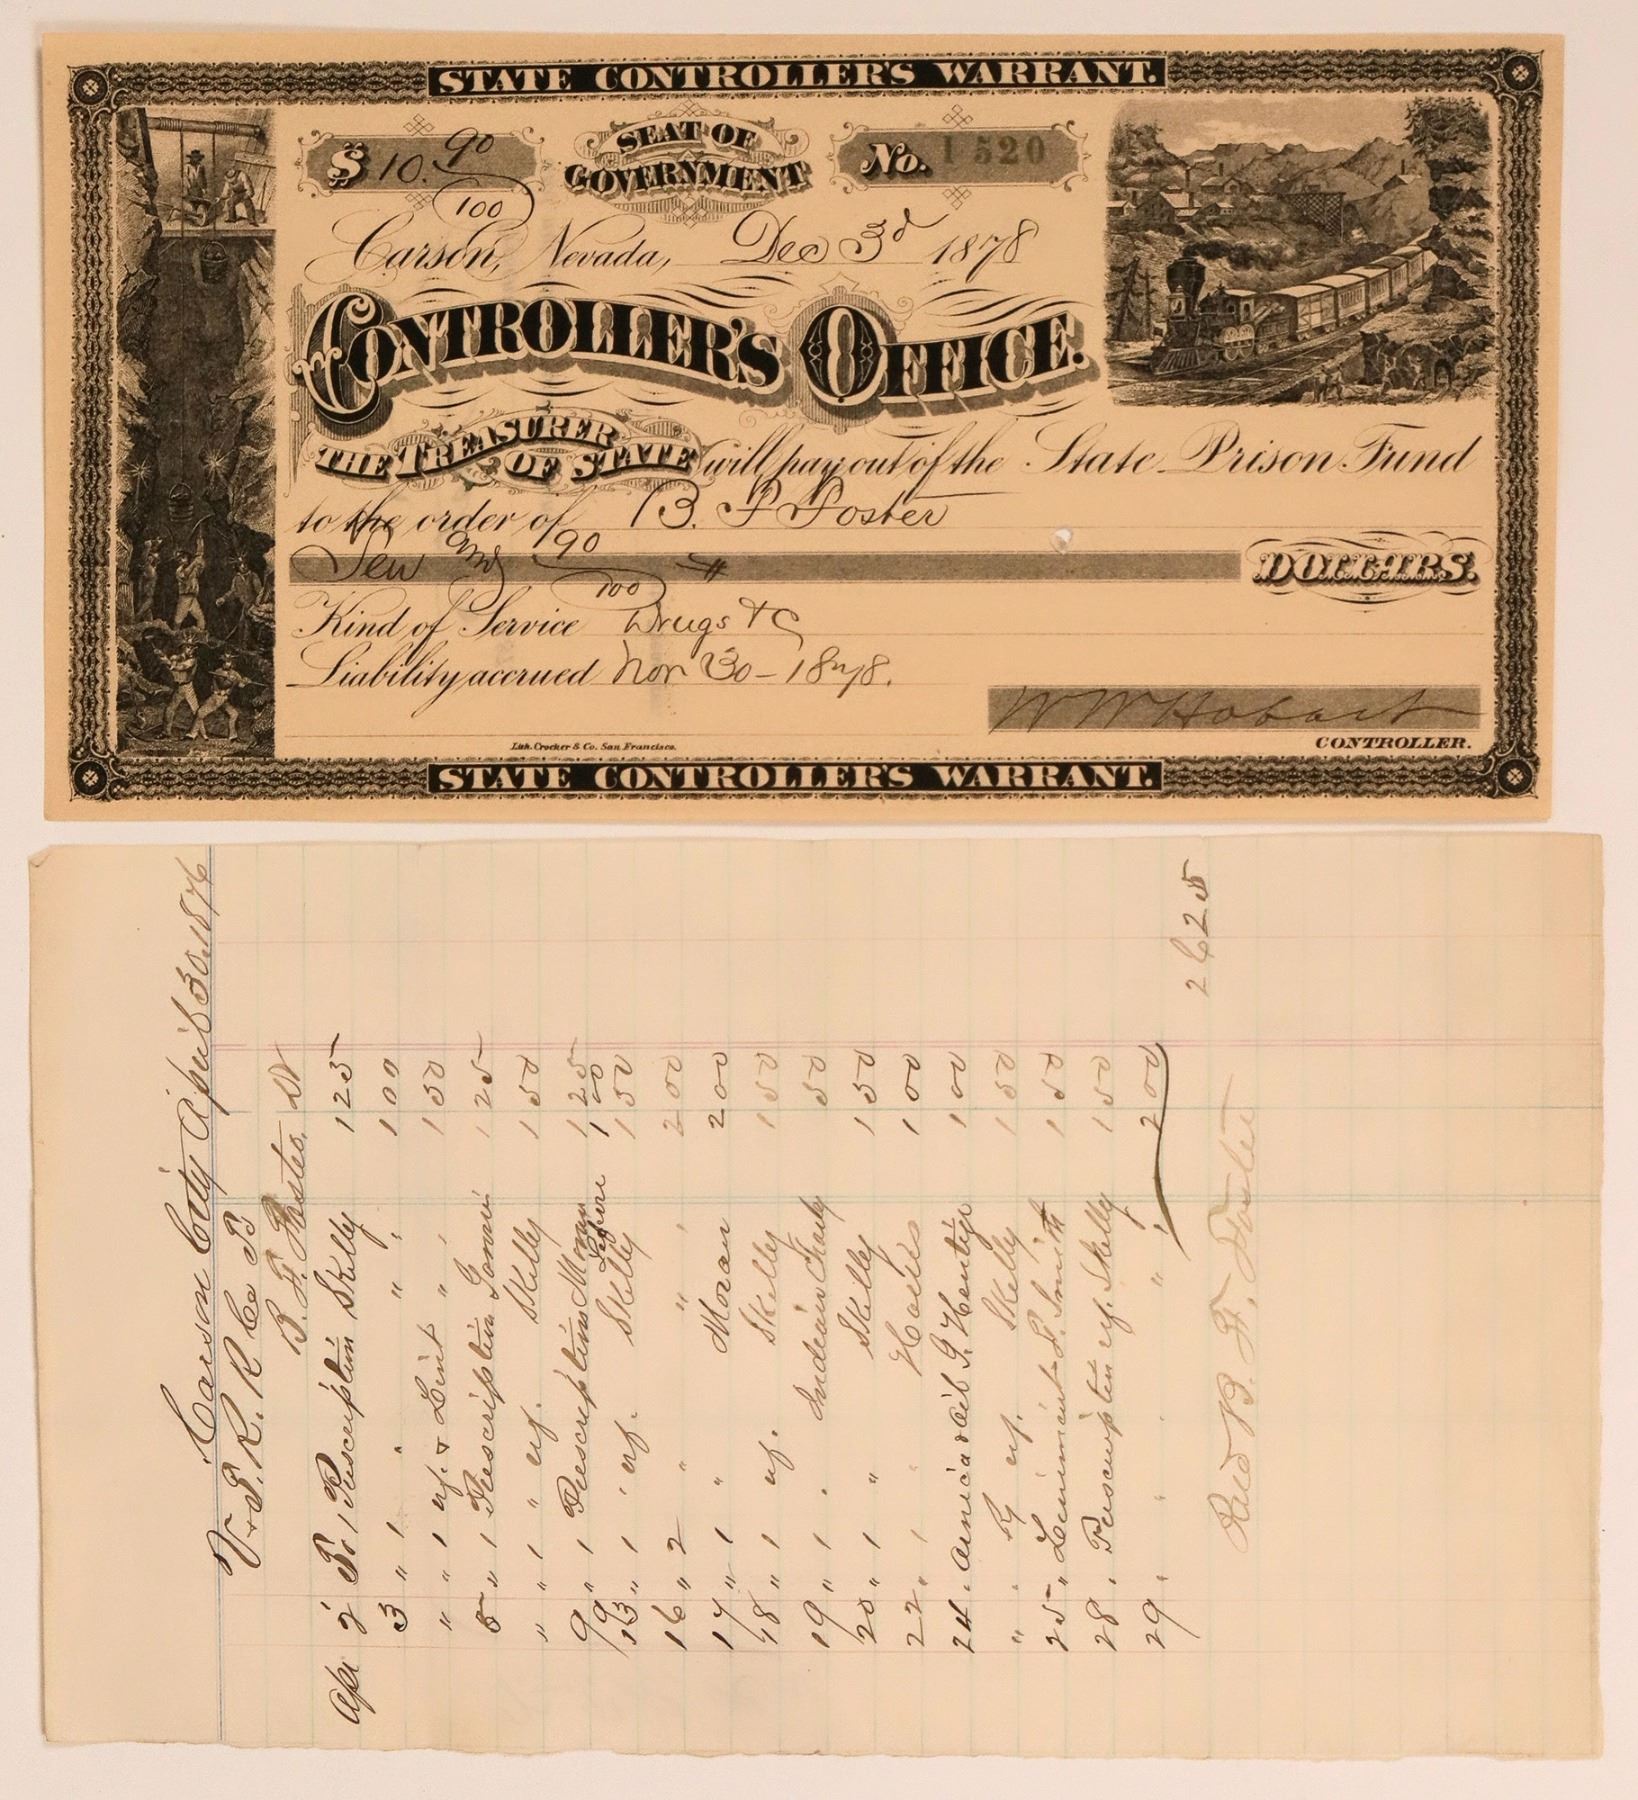 STATE CONTROLLER'S WARRANT.
$ 10. 90/100
SEAT OF GOVERNMENT
No. 1520
Carson, Nevada, Dec 3d 1878
CONTROLLER'S OFFICE.
THE TREASURER OF STATE will pay out of the State Prison Fund
to the order of B. F. Foster
Ten and 90/100 DOLLARS.
Kind of Service Drugs &c
Liability accrued Nov 30 - 1878.
W W Hobart
CONTROLLER.
Lith. Crocker & Co. San Francisco.
STATE CONTROLLER'S WARRANT.
Carson City April 30. 1876
V & T. R. R Co
B. F. Foster Dr
Apl 2 To 1 Prescription Skelly 1 25
3 " 1 " " 1 00
" " 1 & Lint " 1 50
5 " 1 Prescription 1 25
" " 1 " Skelly 1 50
9 " 1 Prescriptions Moran 1 25
19 1 00
13 " 1 " Skelly 1 50
16 " 2 " " 2 00
17 " 1 " Moran 2 00
18 " 1 Skelly 1 50
19 " 1 Indian Charly 50
20 " 1 " Skelly 1 50
22 " 1 " 1 00
24 " Arnica & Oil 1 00
" " Skelly 1 50
25 " Liniment Smith 1 50
28 " Prescription Skelly 1 50
29 " " " 2 00
26 25
B. F. Foster